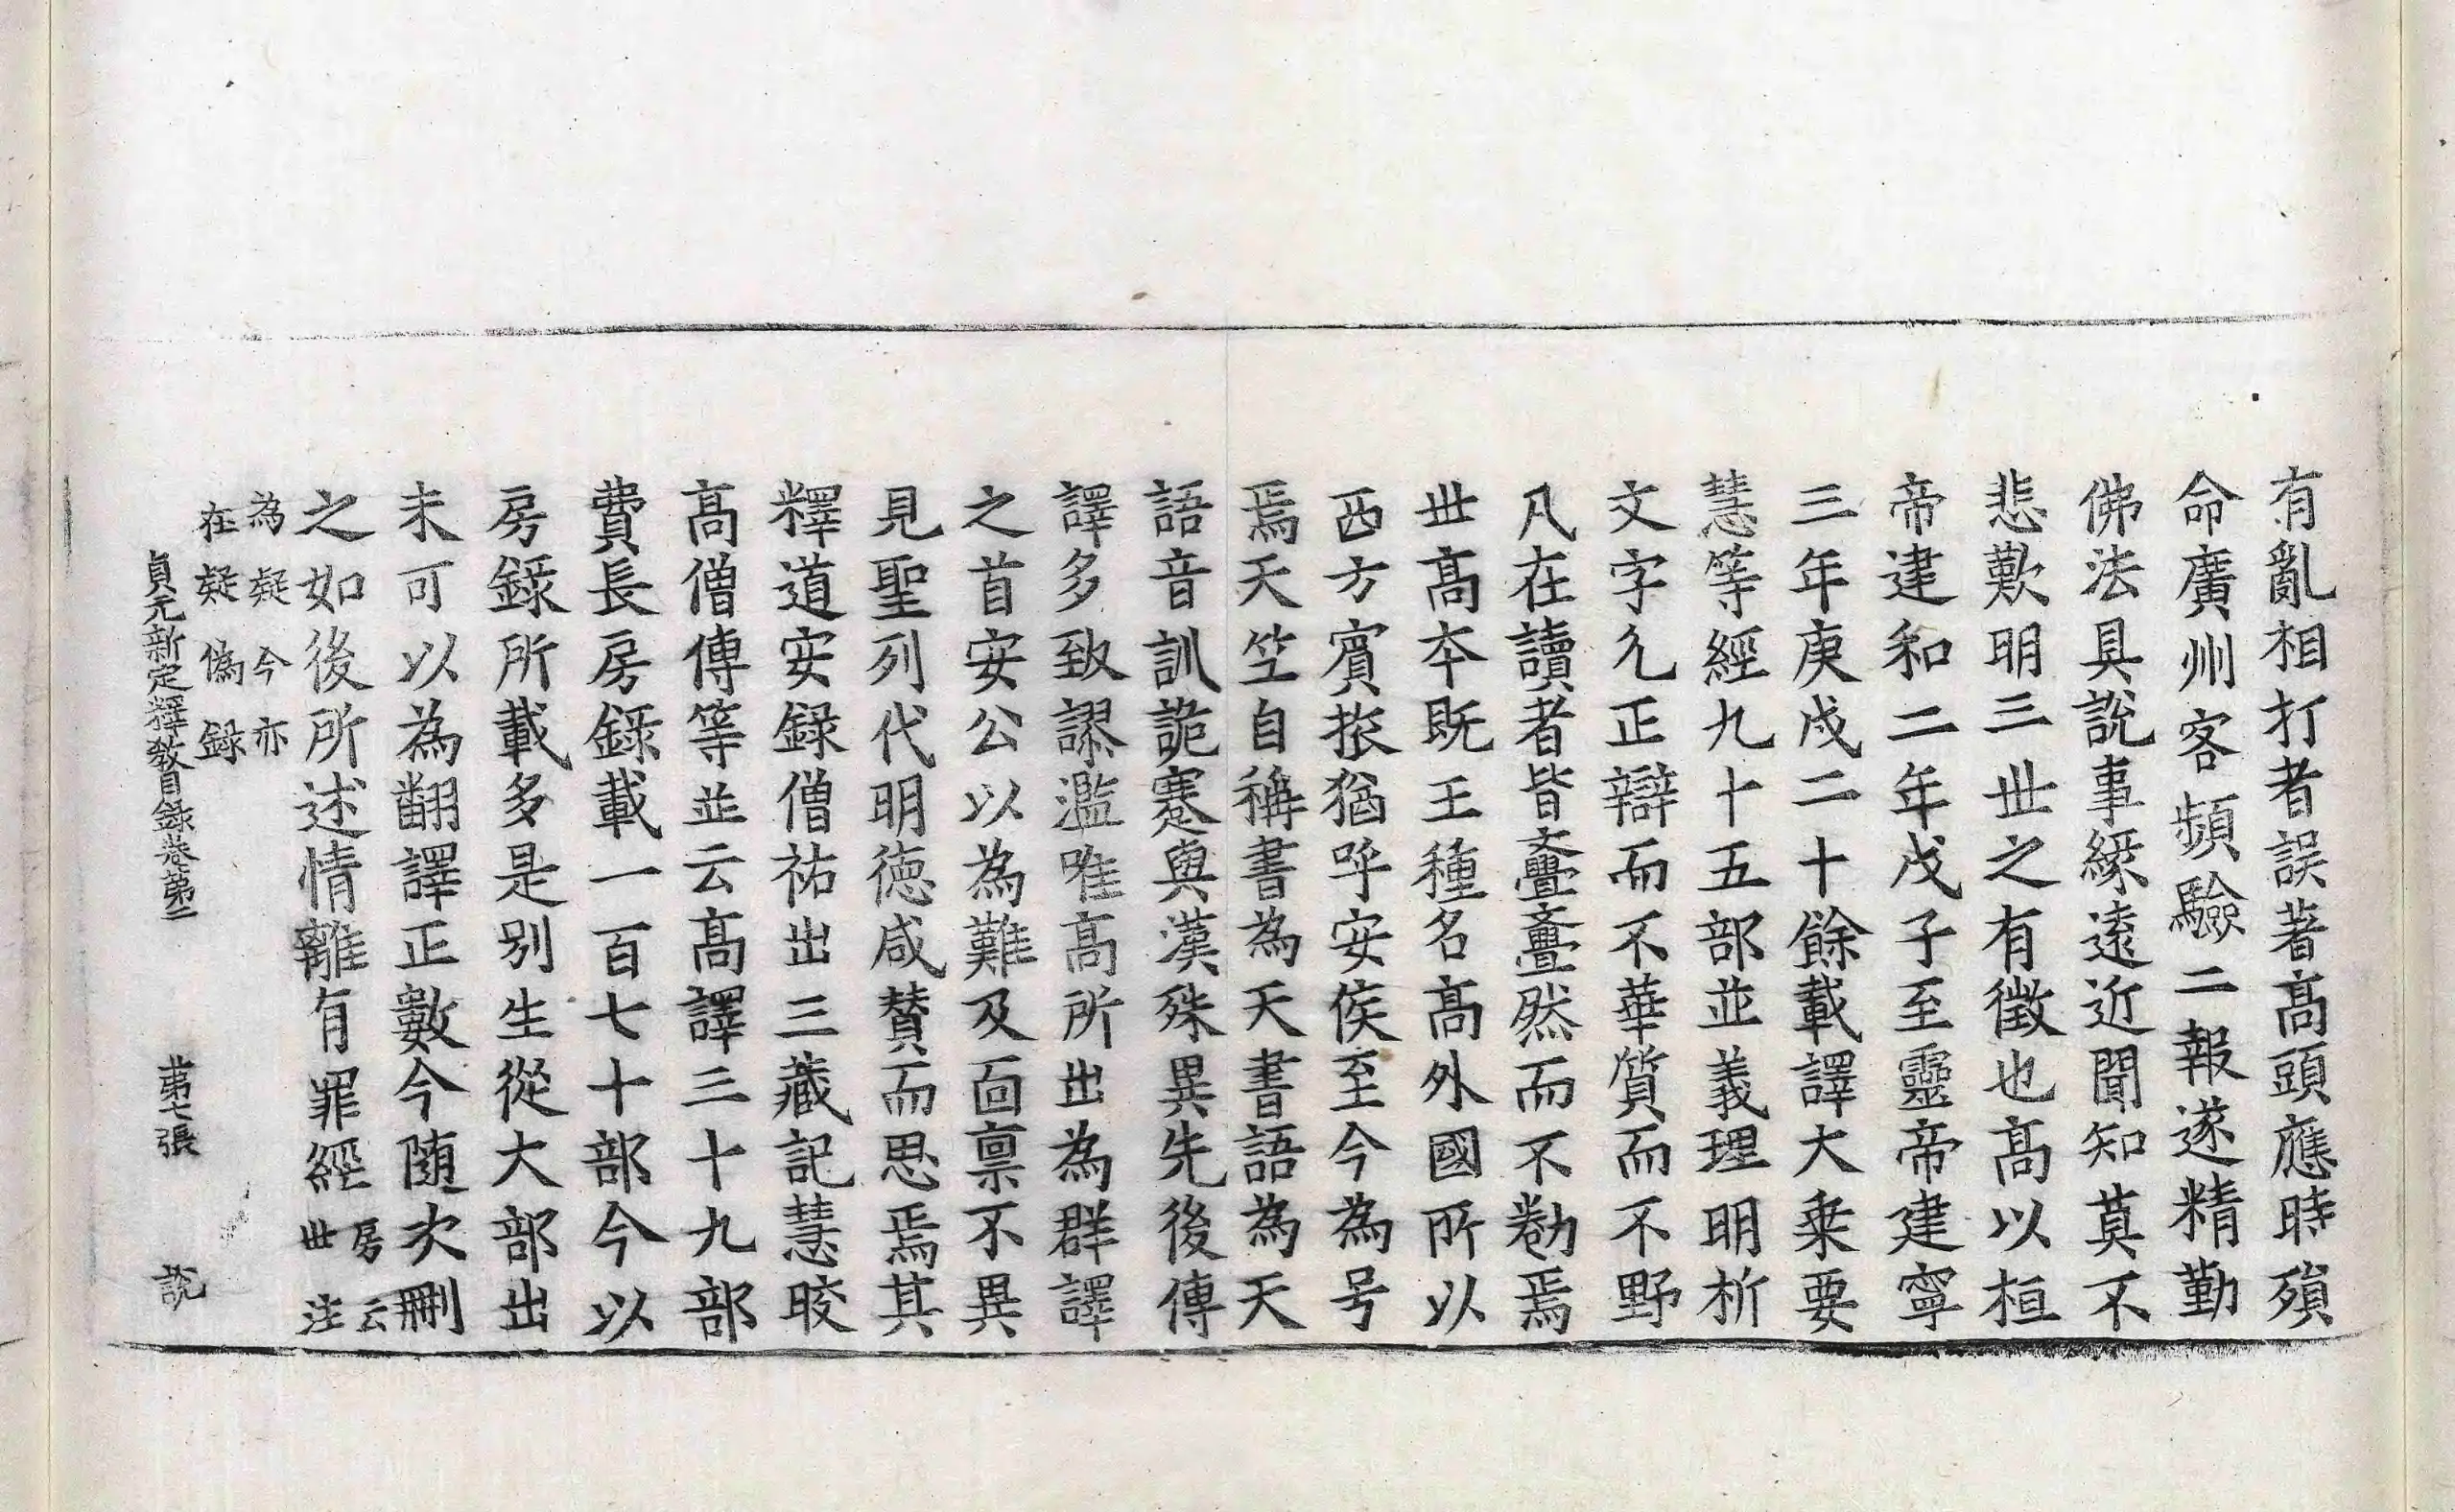 有亂相打者誤著髙頭應時殞
命廣州客頻驗二報遂精勤
佛法具說事緣遠近聞知莫不
悲歎明三世之有徵也髙以桓
帝建和二年戊子至靈帝建寧
三年庚戍二十餘載譯大乗要
慧等經九十五部並義理明析
文字允正辯而不華質而不野
凡在讀者皆亹亹然而不勌焉
世髙本既王種名髙外國所以
西方賓旅猶呼安侯至今為号
焉天竺自稱書為天書語為天
語音訓詭蹇與漢殊異先後傳
譯多致謬濫唯髙所出為群譯
之首安公以為難及面禀不異
見聖列代明徳咸賛而思焉其
釋道安錄僧祐出三藏記慧晈
髙僧傳等並云髙譯三十九部
費長房錄載一百七十部今以
房錄所載多是別生從大部出
未可以為翻譯正數今随次刪
之如後所述情離有罪經房云世注
為疑今亦在疑偽錄
貞元新定釋教目錄卷第二 第七張 說